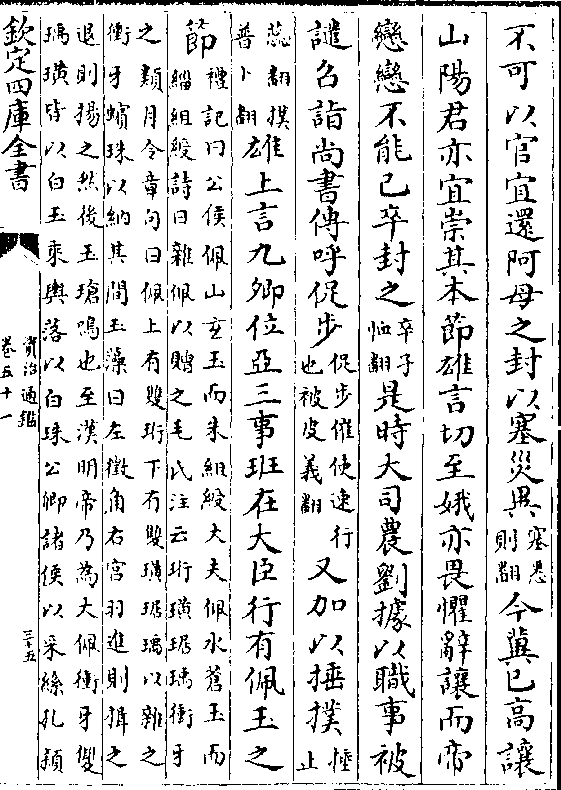 不可以官宜還阿母之封以塞災異塞悉則翻今冀已高讓
山陽君亦宜崇其本節雄言切至娥亦畏懼辭讓而帝
戀戀不能已卒封之卒子恤翻是時大司農劉據以職事被
譴召詣尚書傳呼促步促步催使速行也被皮義翻又加以捶撲捶止
蘂翻撲普卜翻雄上言九卿位亞三事班在大臣行有佩玉之
節禮記曰公侯佩山玄玉而朱組綬大夫佩水蒼玉而
緇組綬詩曰雜佩以贈之毛氏注云珩璜琚瑀衝牙
之類月令章句曰佩上有雙珩下有雙璜琚瑀以雜之
衝牙蠙珠以納其間玉藻曰左徵角右宮羽進則揖之
退則揚之然後玉瑲鳴也至漢明帝乃為大佩衝牙雙
瑀璜皆以白玉乘輿落以白珠公卿諸侯以采絲孔穎
欽定四庫全書
資治通鑑
卷五十一
三十五